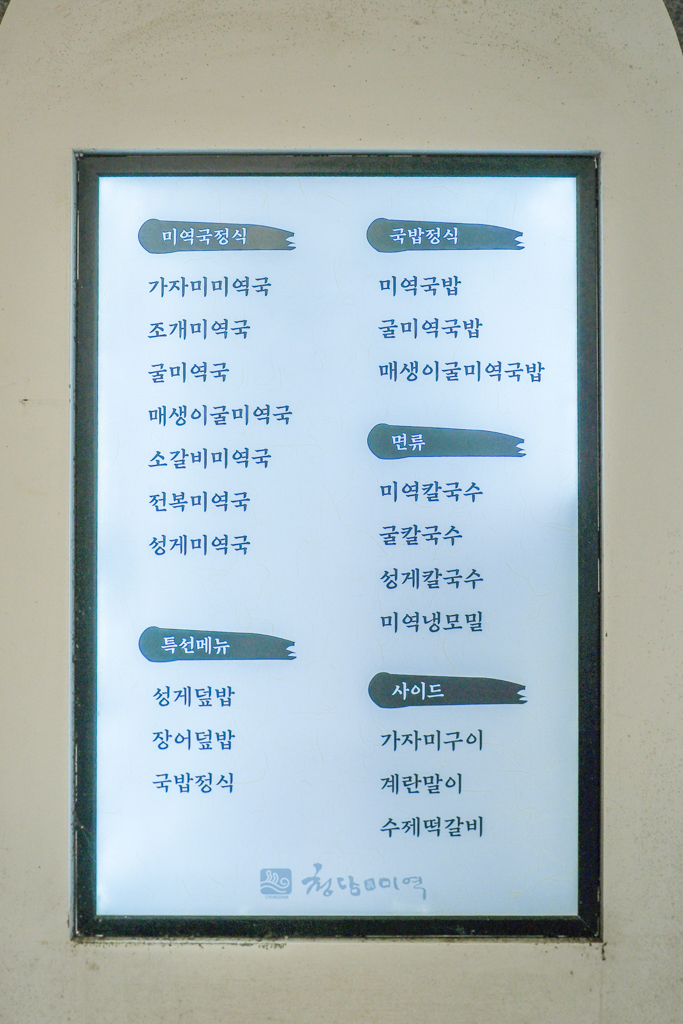 미역국정식
가자미미역국
조개미역국
굴미역국
매생이굴미역국
소갈비미역국
전복미역국
성게미역국
특선메뉴
성게덮밥
장어덮밥
국밥정식
국밥정식
미역국밥
굴미역국밥
매생이굴미역국밥
면류
미역칼국수
굴칼국수
성게칼국수
미역냉모밀
사이드
가자미구이
계란말이
수제떡갈비
청담미역